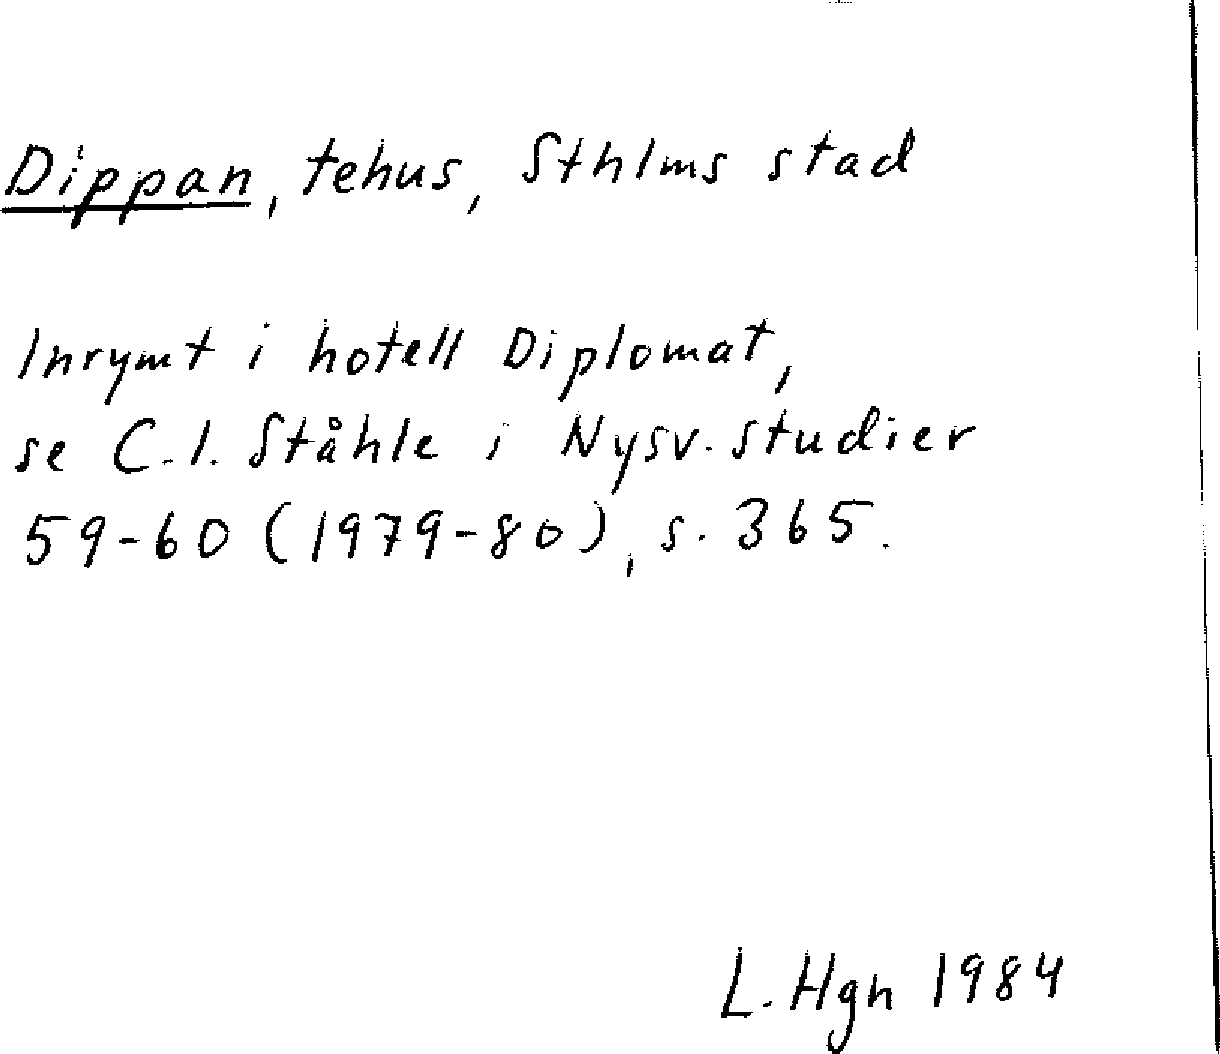 Dippan, tehus, Sthlms stad
Inrymt i hotell Diplomat,
se C.I. Ståhle i Nysv. studier
59-60 (1979-80), s. 365.
L. Hgn 1984